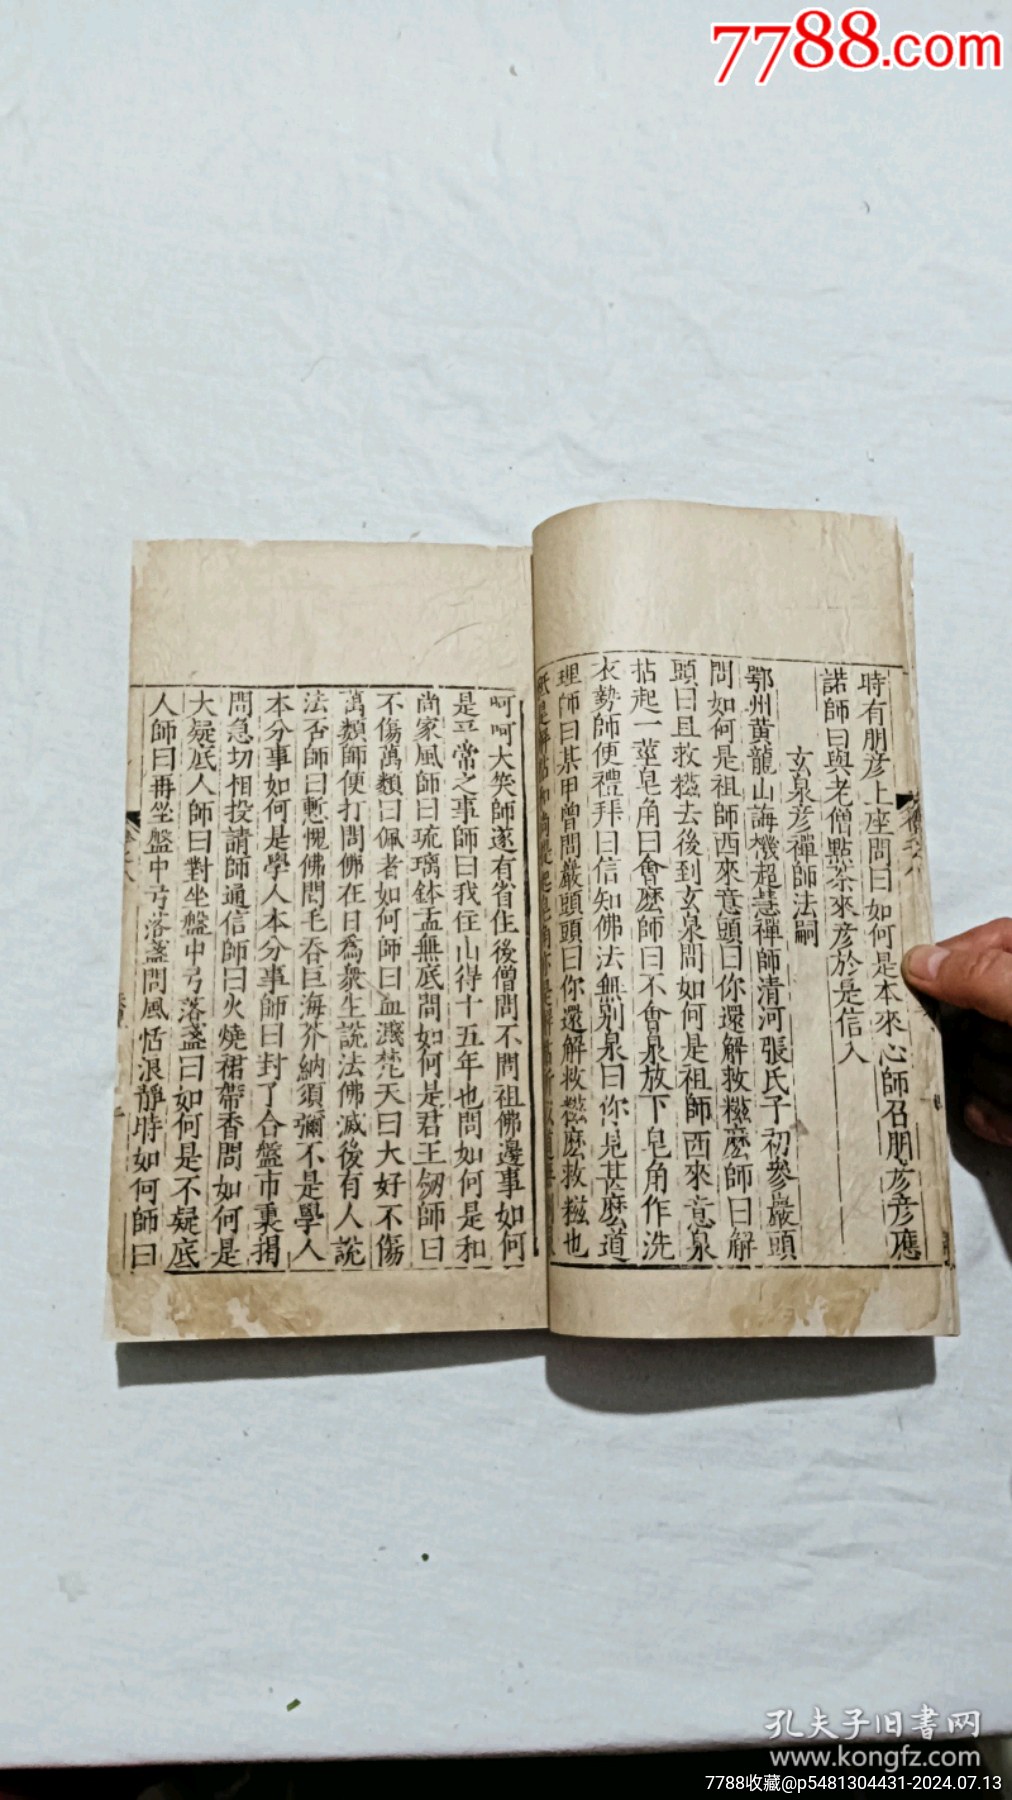 7788.com
時有朋彥上座問曰如何是本來心師召朋彥彥應
諾師曰與老僧點茶來彥於是信入
玄泉彥禪師法嗣
鄂州黃龍山誨機超慧禪師清河張氏子初參巖頭
問如何是祖師西來意頭曰你還解救糍麼師曰解
頭曰且救糍去後到玄泉問如何是祖師西來意泉
拈起一莖皂角曰會麼師曰不會泉放下皂角作洗
衣勢師便禮拜曰信知佛法無別泉曰你見甚麼道
理師曰某甲曾問巖頭頭曰你還解救糍麼救糍也
秖是解粘和尚提起皂角亦是解粘所以道無別泉
呵呵大笑師遂有省住後僧問不問祖佛邊事如何
是平常之事師曰我住山得十五年也問如何是和
尚家風師曰琉璃鉢盂無底問如何是君王劒師曰
不傷萬類曰佩者如何師曰血濺梵天曰大好不傷
萬類師便打問佛在日為衆生說法佛滅後有人說
法否師曰慙愧佛問毛吞巨海芥納須彌不是學人
本分事如何是學人本分事師曰封了合盤市裏揭
問急切相投請師通信師曰火燒裙帶香問如何是
大疑底人師曰對坐盤中弓落盞曰如何是不疑底
人師曰再坐盤中弓落盞問風恬浪靜時如何師曰
孔夫子旧書网
www.kongfz.com
7788收藏@p5481304431-2024.07.13